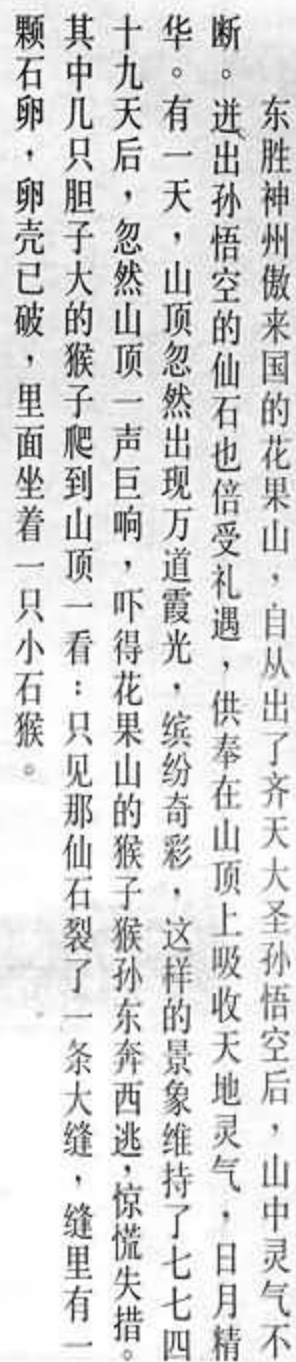 东胜神州傲来国的花果山，自从出了齐天大圣孙悟空后，山中灵气不
断。迸出孙悟空的仙石也倍受礼遇，供奉在山顶上吸收天地灵气，日月精
华。有一天，山顶忽然出现万道霞光，缤纷奇彩，这样的景象维持了七七四
十九天后，忽然山顶一声巨响，吓得花果山的猴子猴孙东奔西逃，惊慌失措。
其中几只胆子大的猴子爬到山顶一看：只见那仙石裂了一条大缝，缝里有一
颗石卵，卵壳已破，里面坐着一只小石猴。